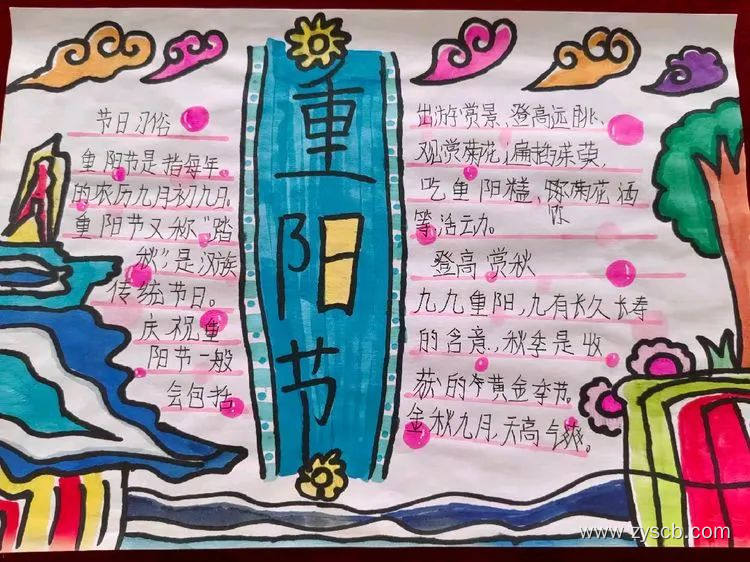 重阳节
节日习俗
重阳节是指每年
的农历九月初九日。
重阳节又称“踏
秋”是汉族
传统节日。
庆祝重
阳节一般
会包括
出游赏景、登高远眺、
观赏菊花、遍插茱萸、
吃重阳糕、菊花酒
饮
等活动。
登高赏秋
九九重阳，九有长久长寿
的含意，秋季是收
获的黄金季节。
金秋九月，天高气爽。
www.zyscb.com